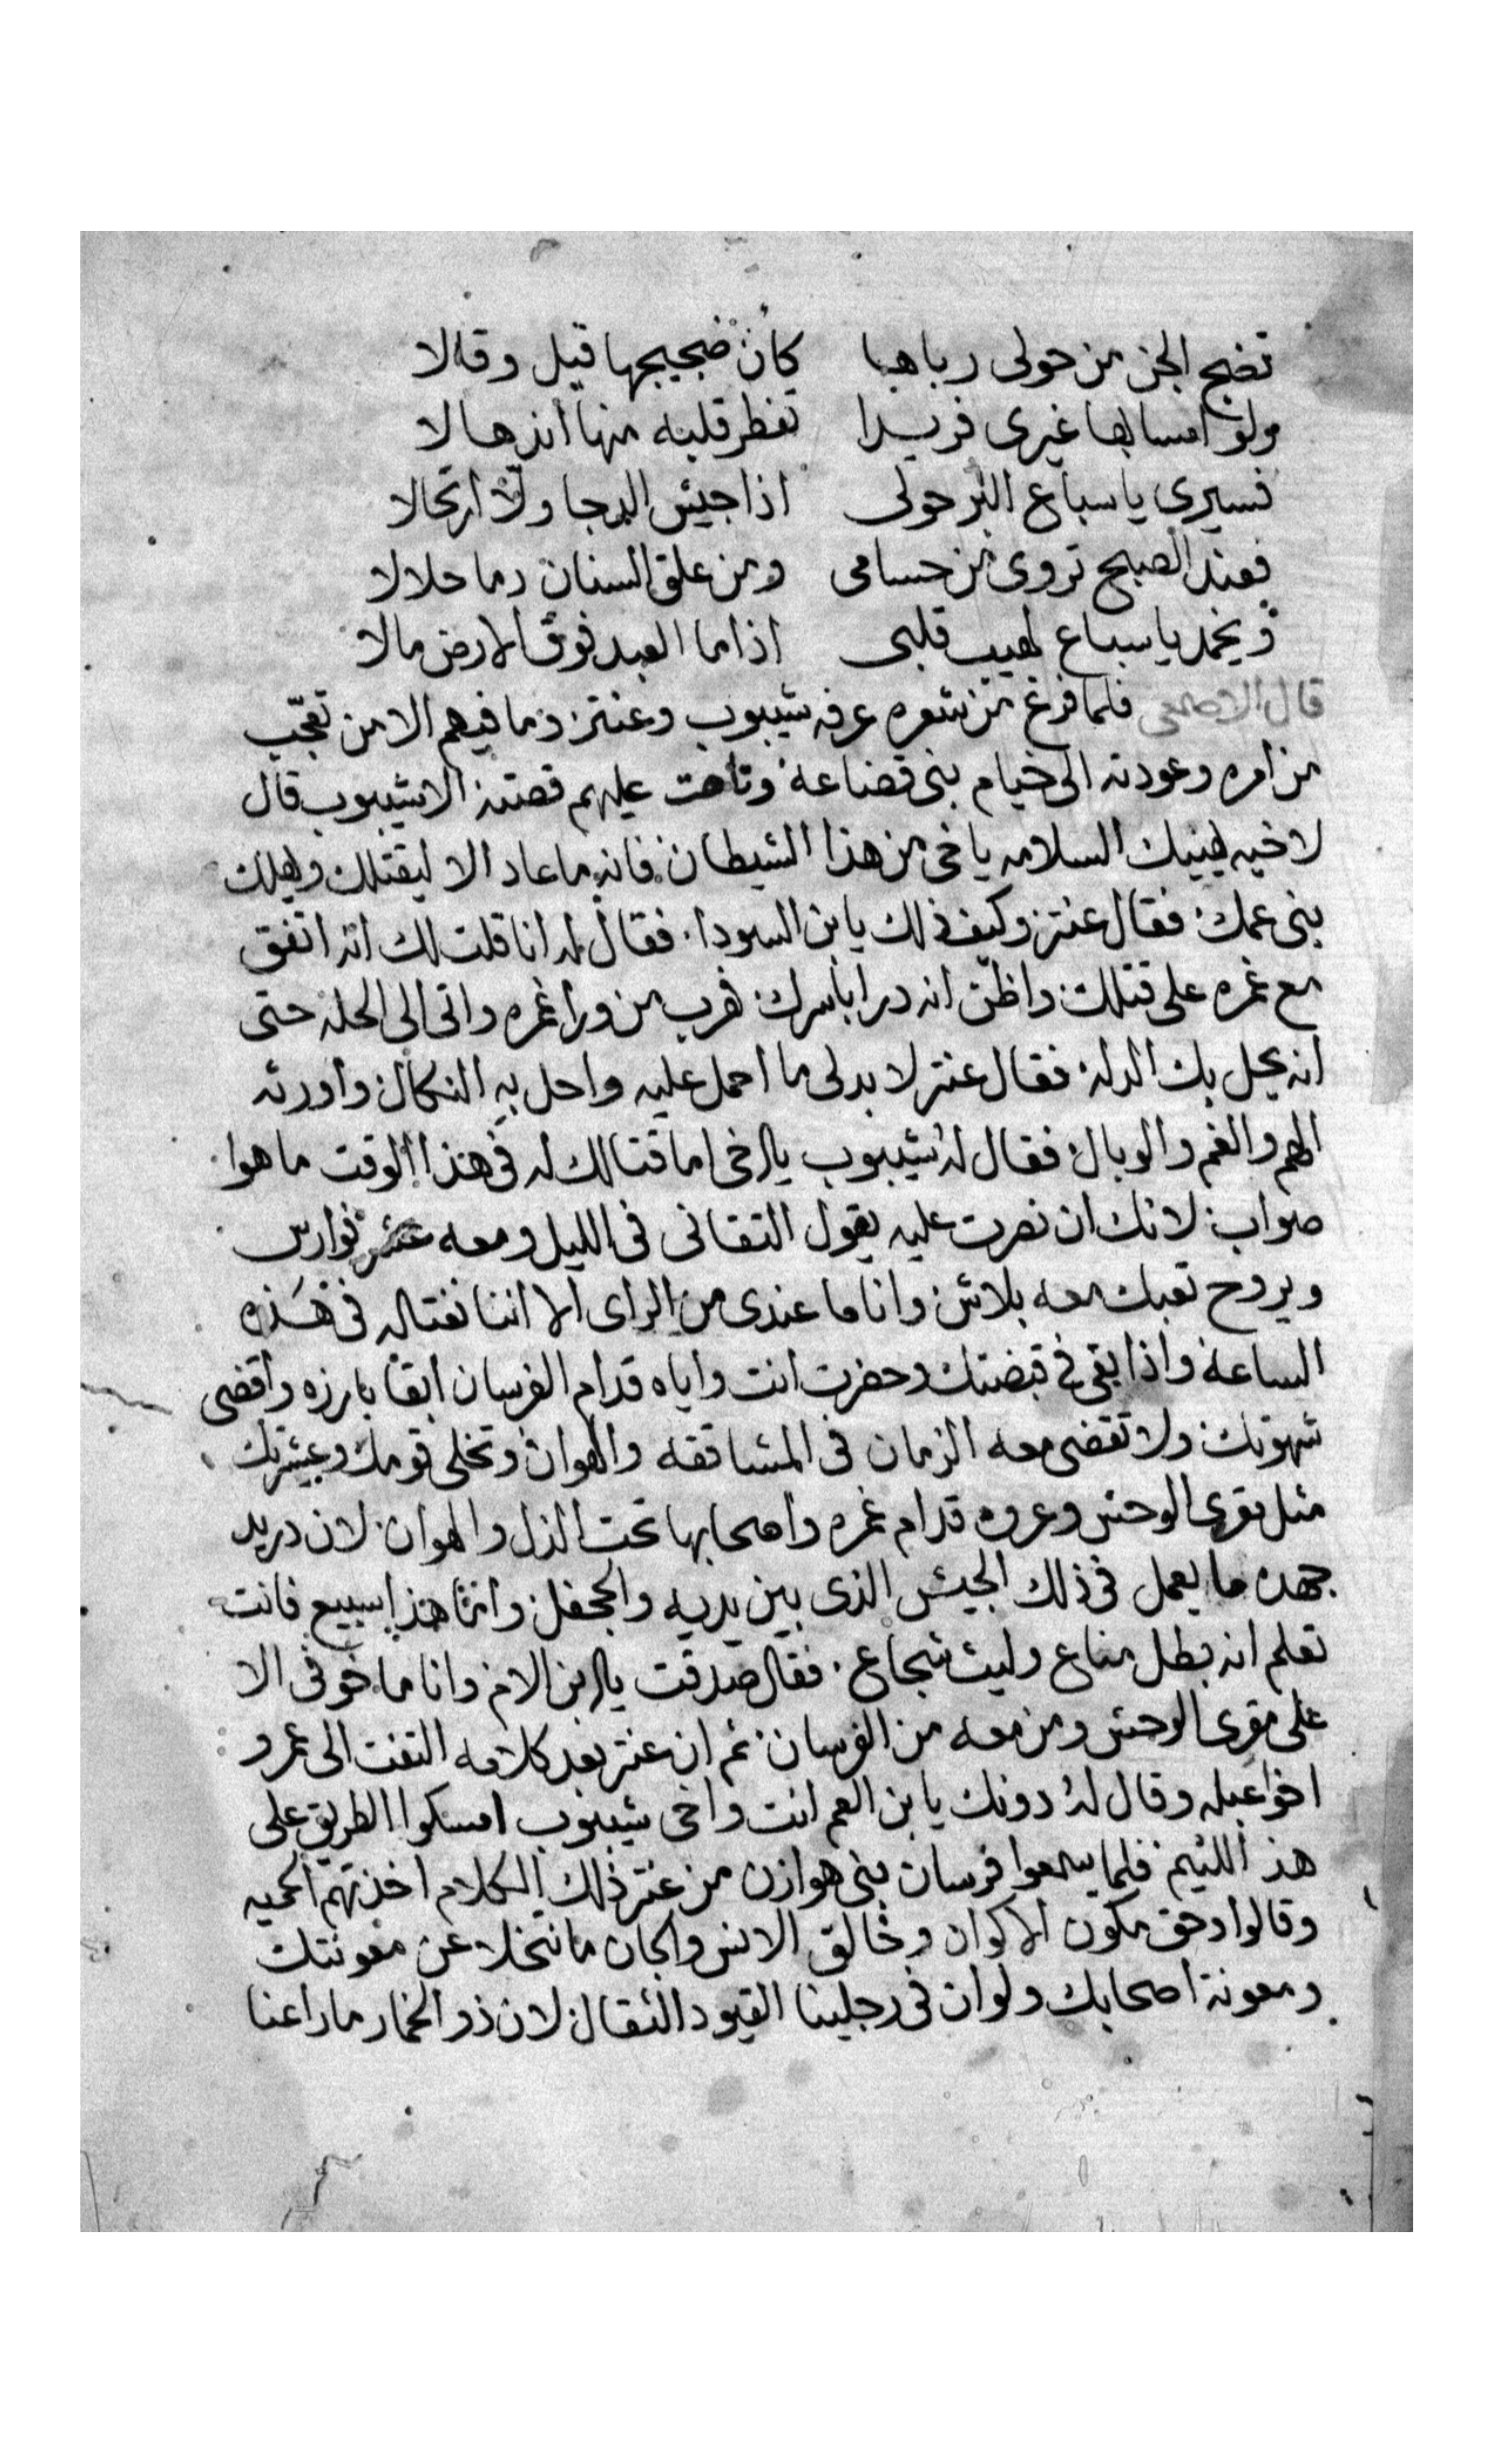 تضج الجن من حولى رباها كان ضجيجها قيل وقالا
ولو امسا بها غيرى فريدا تفطر قلبه منها انذهالا
فسيرى يا سباع البر حولى اذا جيش الدجا ولّا ارتحالا
فعند الصبح تروى من حسامى ومن علق السنان دما حلالا
ويخمد يا سباع لهيب قلبى اذا ما العبد فوق الارض مالا
قال الاصمعى فلما فرغ من شعره عرفه شيبوب وعنتر وما فيهم الا من تعجّب
من امره وعودته الى خيام بنى قضاعة وتاهت عليهم قصته الا شيبوب قال
لاخيه يهنيك السلامه ياخى من هذا الشيطان فانه ما عاد الا ليقتلك ويهلك
بنى عمك فقال عنتر وكيف ذلك يابن السودا فقال له انا قلت لك انه اتفق
مع غمره على قتلك واظن انه درا باسرك فهرب من ورا غمره واتى الى الحله حتى
انه يحل بك الذله فقال عنتر لا بد لى ما احمل عليه واحل به النكال واورثه
الهم والغم والوبال فقال له شيبوب يا اخى اما قتالك له فى هذا الوقت ما هوا
صواب لانك ان نصرت عليه يقول التقانى فى الليل ومعه عشر فوارس
ويروح تعبك معه بلاش وانا ما عندى من الراى الا اننا نغتاله فى هذه
الساعة واذا بقى فى قبضتك وحضرت انت واياه قدام الفرسان ابقا بارزه واقضى
شهوتك ولا تقضى معه الزمان فى المشاققه والهوان وتخلى قومك وعشيرتك
مثل مقرى الوحش وعروه قدام غمره واصحابها تحت الذل والهوان لان دريد
جهده ما يعمل فى ذلك الجيش الذى بين يديه والجحفل وانما هذا سبيع فانت
تعلم انه بطل مناع وليث شجاع فقال صدقت يا ابن الام وانا ما خوفى الا
على مقرى الوحش ومن معه من الفرسان ثم ان عنتر بعد كلامه التفت الى عمرو
اخوا عبله وقال له دونك يابن العم انت واخى شيبوب امسكوا الطريق على
هذ اللئيم فلما سمعوا فرسان بنى هوازن من عنتر ذلك الكلام اخذتهم الحميه
وقالوا وحق مكون الاكوان وخالق الانس والجان ما نتخلا عن معونتك
ومعونة اصحابك ولو ان فى رجلينا القيود الثقال لان ذو الخمار ما راعنا